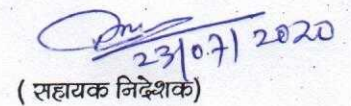 23/07/2020
( सहायक निदेशक)